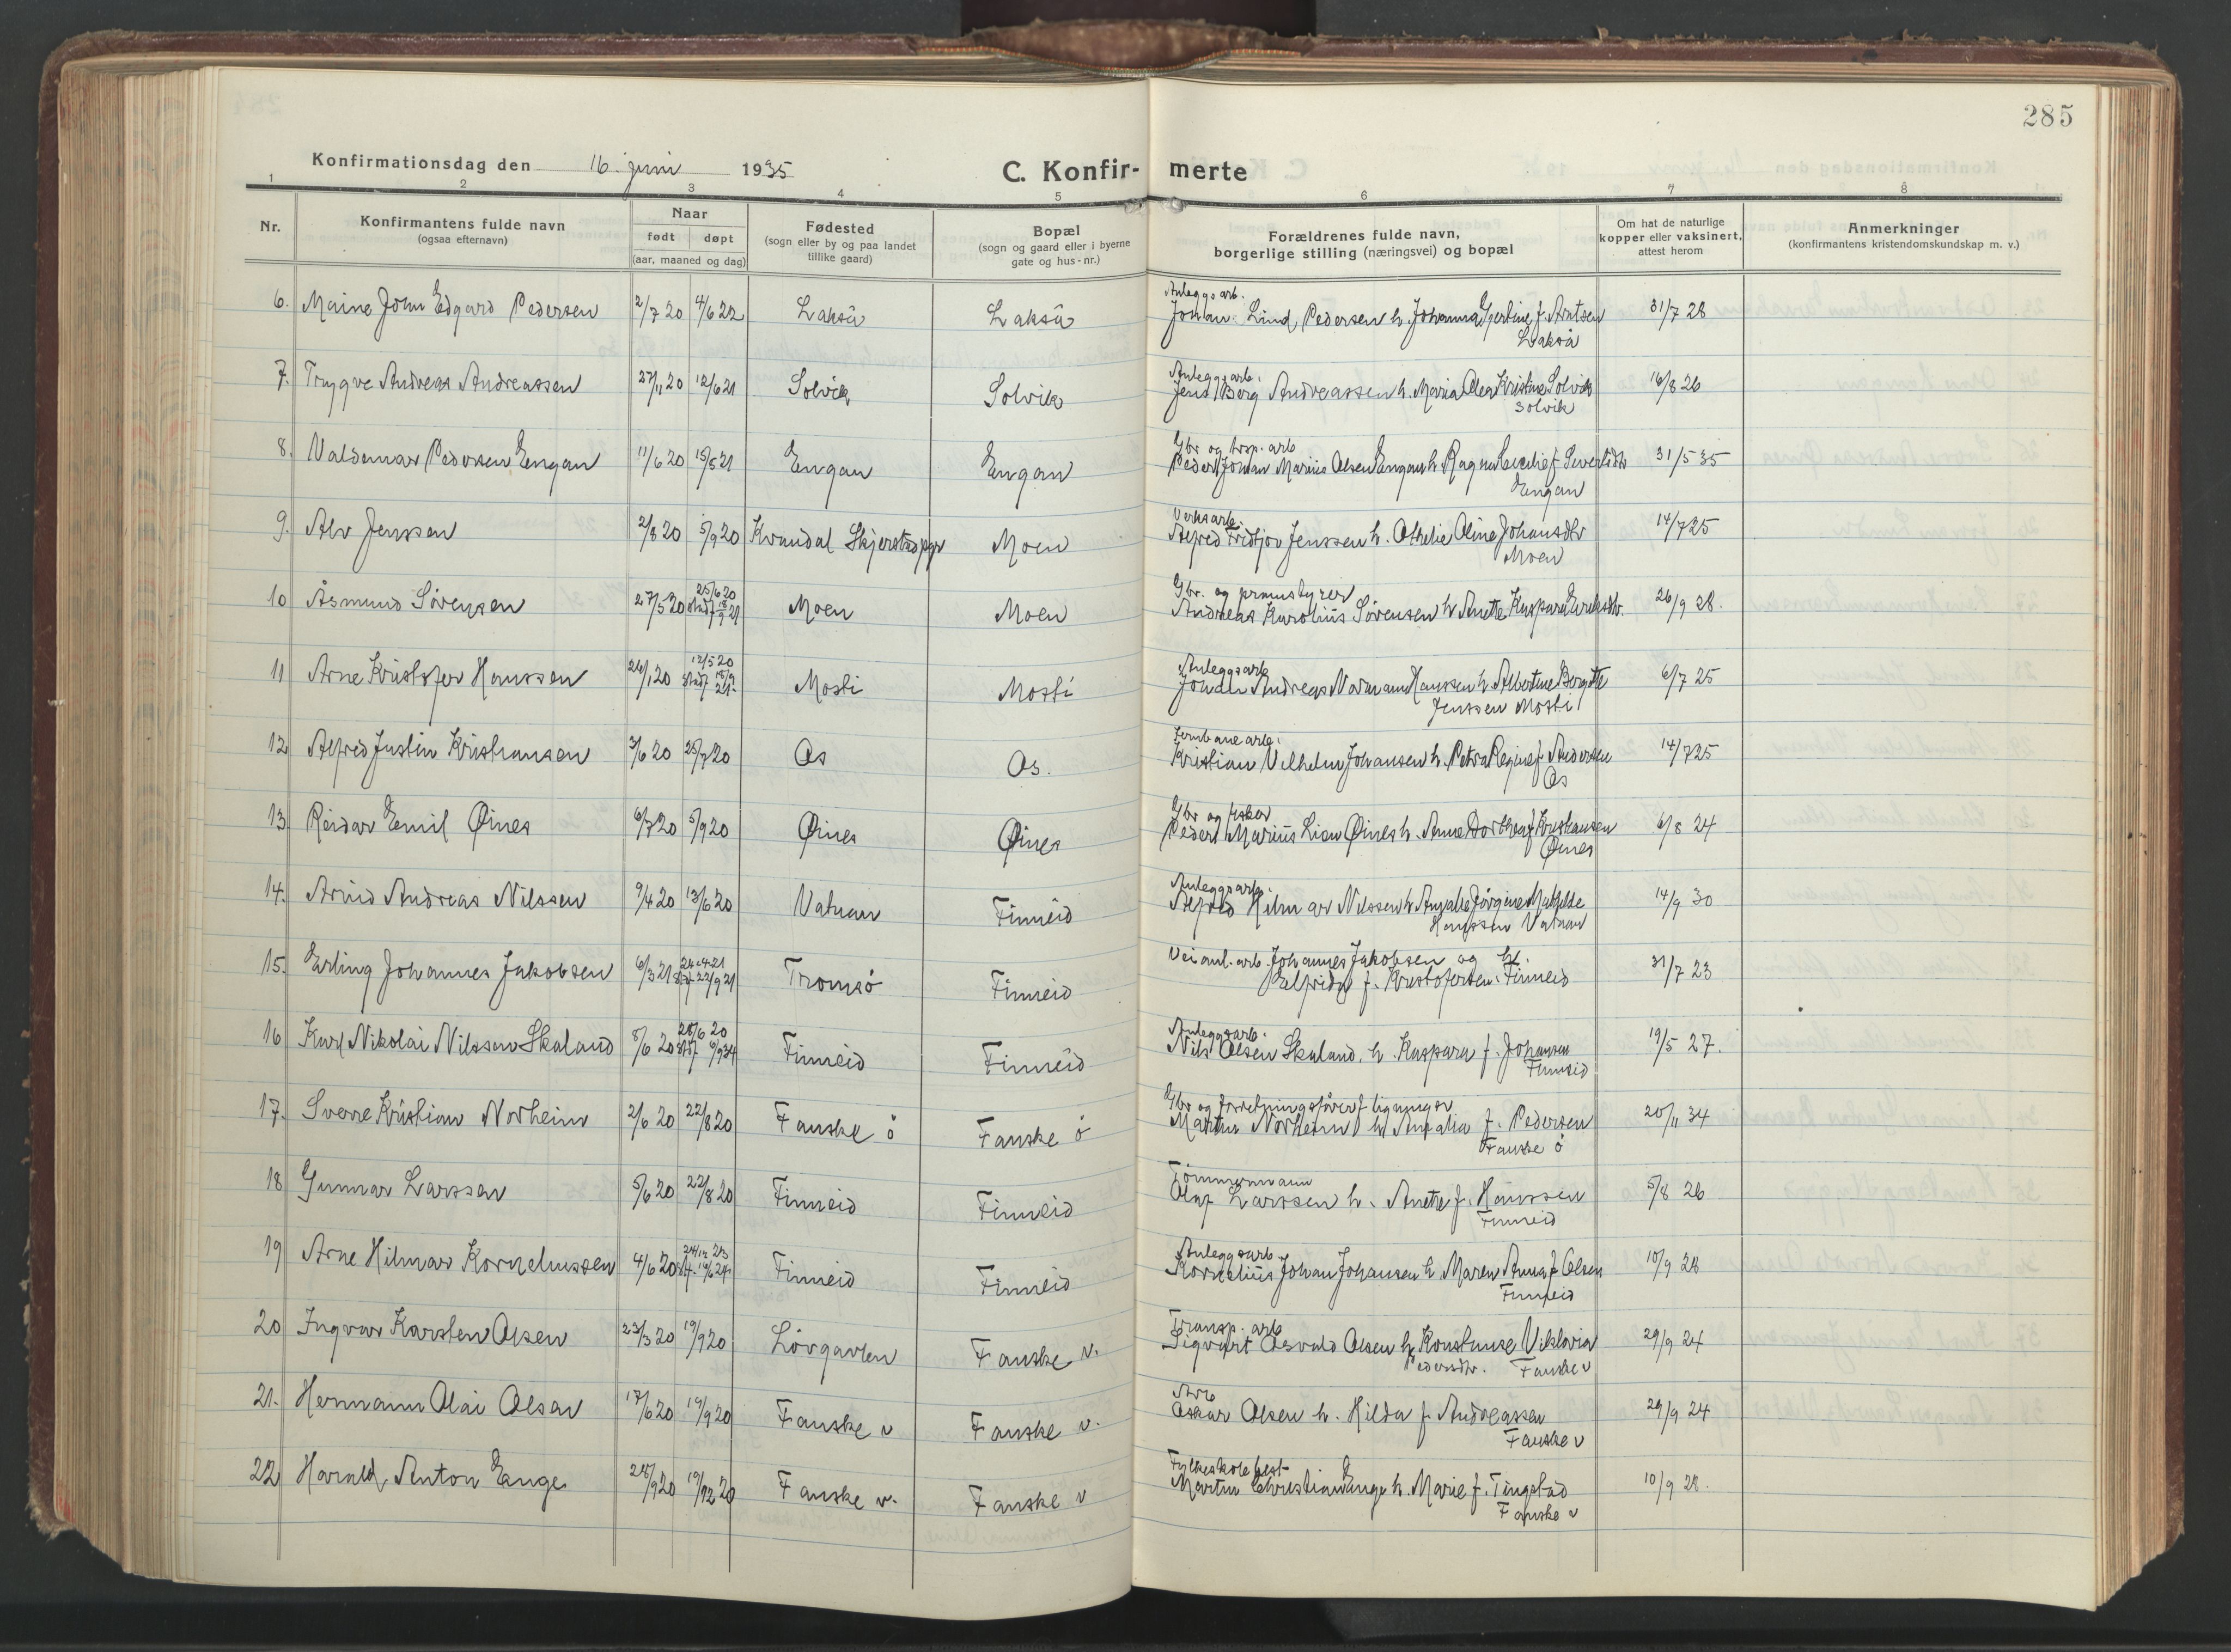 285
Konfirmationsdag den 16. juni 1935
C. Konfir- merte
1 2 3 4 5 6 7 8
Nr.
Konfirmantens fulde navn
(ogsaa efternavn)
Naar
født døpt
(aar, maaned og dag)
Fødested
(sogn eller by og paa landet
tillike gaard)
Bopæl
(sogn og gaard eller i byerne
gate og hus-nr.)
Forældrenes fulde navn,
borgerlige stilling (næringsvei) og bopæl
Om hat de naturlige
kopper eller vaksinert,
attest herom
Anmerkninger
(konfirmantens kristendomskundskap m. v.)
Anleggsarb.
6. Maine John Edgard Pedersen 2/7 20 4/6 22 Lakså Lakså Johan Lind Pedersen h. Johanna Gjertine f. Arntsen 31/7 28
Lakså
Anleggsarb.
7. Trygve Andreas Andreassen 27/11 20 12/6 21 Solvik Solvik Jens Berg Andreassen h. Maria Olea Kristine Solvik 16/8 26
Solvik
Gbr og trsp. arb
8. Valdemar Pedersen Engan 11/6 20 15/5 21 Engan Engan Peder Johan Marius Olsen Engan h. Ragna f. 31/5 35
Engan
Verksarb.
9. Alv Jenssen 2/8 20 5/9 20 Kvandal Skjerstad pgr Moen Alfred Fridtjov Jenssen h. Othelie Oline Johansdtr 14/7 25
Moen
Gbr. og
25/6 20
10 Åsmund Sörensen 27/5 20 Moen Moen Andreas Karolius Sörensen h Anette Kaspara 26/9 28.
Anleggsarb
12/5 20
11 Arne Kristofer Hanssen 26/1 20 Mosti Mosti Johan Andreas Normann Hanssen h. Albertine Bergitte 6/7 25
Jenssen Mosti
Jernbanearb.
12 Alfred Justin Kristiansen 3/6 20 25/7 20 Os Os. Kristian Vilhelm Johansen h. Petra Regine f. Andersen 14/7 25
Os
Gbr og fisker
13. Reidar Emil Øines 6/7 20 5/9 20 Øines Øines Peder Marius Lian Øines h. Anna Dorthea f Kristiansen 6/8 24
Øines
Anleggsarb.
14. Arvid Andreas Nilssen 9/4 20 13/6 20 Vatnan Finneid Alfred Hilmar Nilssen h Amalie Jörgine Mathilde 14/9 30
Hanssen Vatnan
15. Erling Johannes Jakobsen 6/3 21 24-4 21 22/9 21 Tromsö Finneid Veianl. arb. Johannes Jakobsen og h. 31/7 23
Elfrida f. Kristofersen. Finneid
Anleggsarb.
20
16 Karl Nikolai Nilssen Skaland 8/6 20 6/9 34 Finneid Finneid Nils Olsen Skaland, h. Kaspara f. Johansen 19/5 27.
Finneid
Gbr og forretningsförer f
17. Sverre Kristian Norheim 2/6 20 22/8 20 Fauske ö Fauske ö Martin Norheim h Amalia f. Pedersen 20/11 34
Fauske ö
Tömmermann
18 Gunnar Larssen 5/6 20 22/8 20 Finneid Finneid Olaf Larssen h. Anette f. Hanssen 5/8 26
Finneid
Anleggsarb
19 Arne Hilmar Korneliussen 4/6 20 Finneid Finneid Kornelius Johan Johansen h. Maren Anna f Olsen 10/9 28
Finneid
Transp. arb
20 Ingvar Karsten Olsen 23/3 20 19/9 20 Lövgavlen Fauske v. Sigvart Osvald Olsen h Konstanse Viktoria 29/9 24
Pedersdtr. Fauske v
Arb
21. Hermann Olai Olsen 17/6 20 19/9 20 Fauske v Fauske v. Oskar Olsen h. Hilda f Andreassen 29/9 24
Fauske v
Fylkesskolebest
22 Harald Anton Enge 28/9 20 19/12 20 Fauske v. Fauske v Martin Christian Enge h. Marie f. Tingstad 10/9 28.
Fauske v